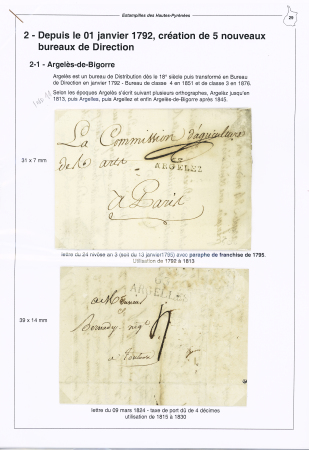 Estampilles des Hautes-Pyrénées
29
2 - Depuis le 01 janvier 1792, création de 5 nouveaux
bureaux de Direction
2-1 - Argelès-de-Bigorre
Argelès est un bureau de Distribution dès le 18° siècle puis transformé en Bureau
de Direction en janvier 1792 - Bureau de classe 4 en 1851 et de classe 3 en 1876.
Selon les époques Argelès s'écrit suivant plusieurs orthographes, Argelez jusqu'en
1813, puis Argelles, puis Argelez et enfin Argelès-de-Bigorre après 1845.
31 x 7 mm
La Commission d'agriculture
de les arts
ARGELEZ
à Paris
lettre du 24 nivôse an 3 (soit du 13 janvier 1795) avec paraphe de franchise de 1795.
Utilisation de 1792 à 1813
39 x 14 mm
ARGELLES
à Toulouse
lettre du 09 mars 1824 - taxe de port dû de 4 décimes
utilisation de 1815 à 1830